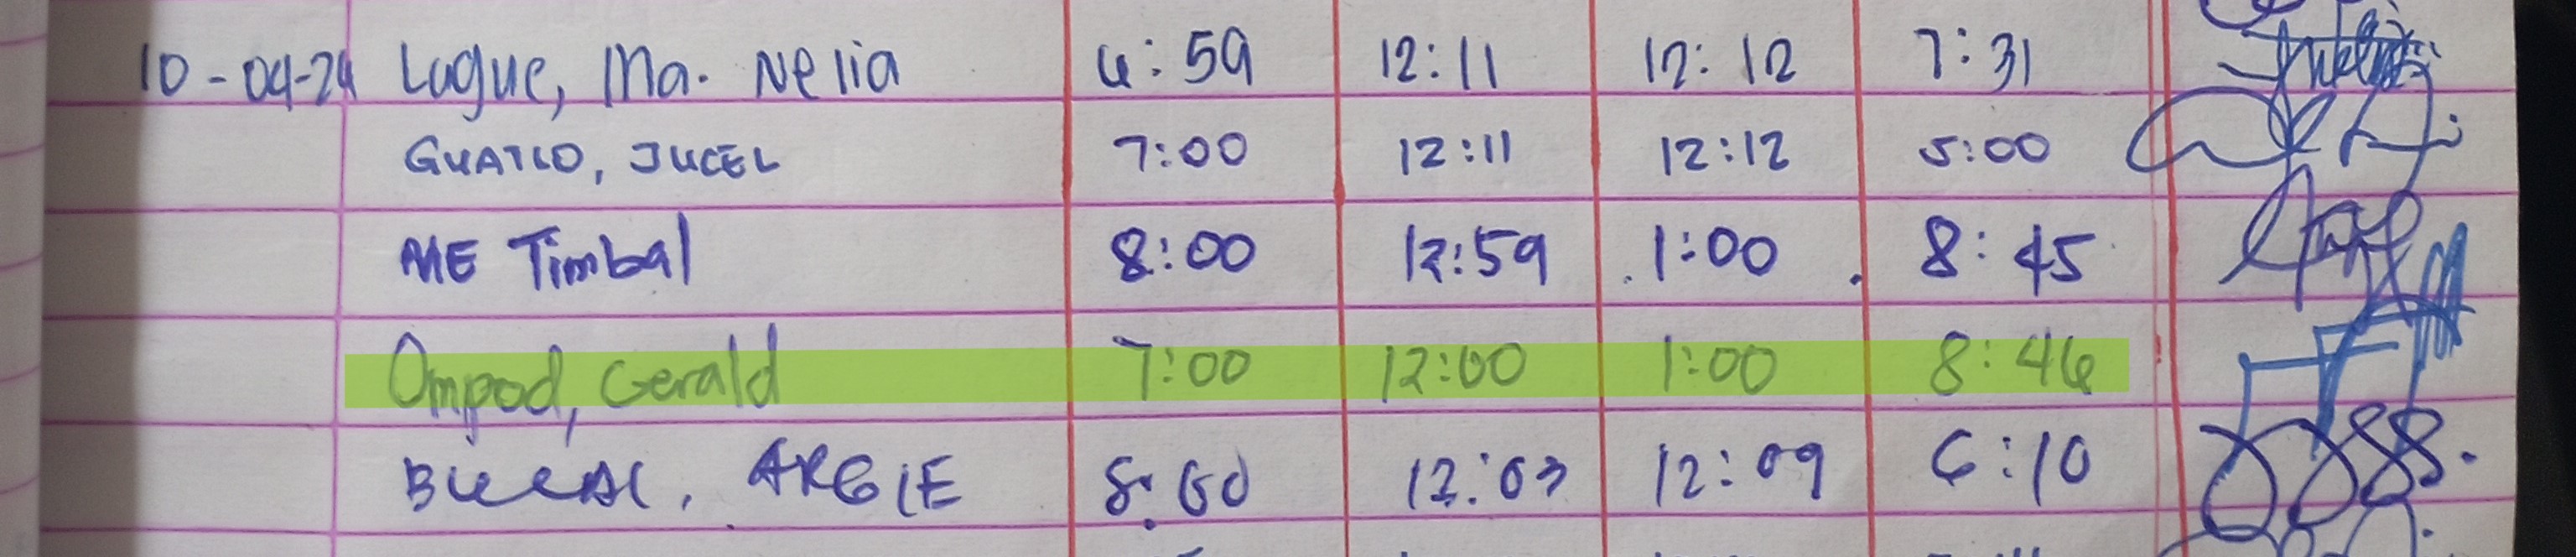 10-04-24 Lague, Ma. Nelia 6:59 12:11 12:12 7:31
GUATLO, JUCEL 7:00 12:11 12:12 5:00
ME Timbal 8:00 12:59 1:00 8:45
Ompod, Gerald 7:00 12:00 1:00 8:46
ARGIE 8:00 12:03 12:09 6:10